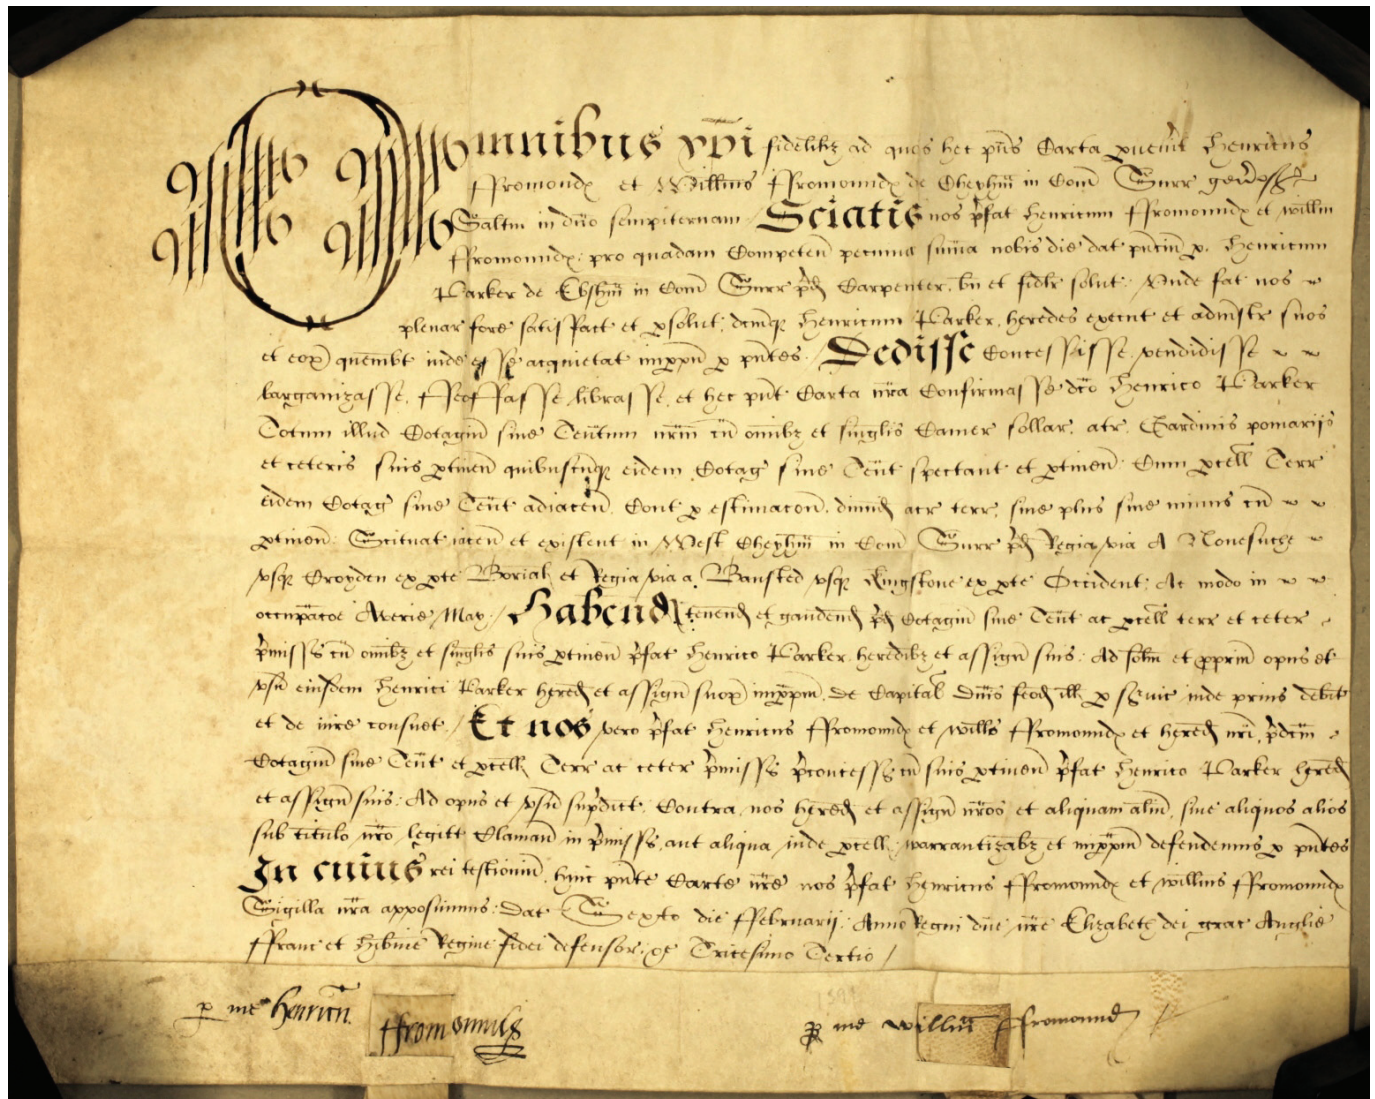 Omnibus xpi fidelibz ad quos hec pñs Carta pvenit Henricus
ffromondf et Willms ffromoundf de Cheyhm in Com Surr
Saltm in dño sempiternam Sciatis nos p̃fat Henricum ffromoundf et willm
ffromoundf pro quadam Competen pecunia suma nobis die dat pñcin p Henricum
Parker de Ebshm in Com Surr p̃d Carpenter, bñ et fidlr solut Vnde fat nos
plenar fore satisfact et psolut, dcmq Henricum Parker, heredes execut et admistr suos
et eor quemlt inde esse acquietat impp̃m p pñtes Dedisse Concessisse vendidisse
barganizasse, ffeoffasse librasse, et hec pñt Carta ñra Confirmasse dco Henrico Parker
Totum illud Cotagiũ sive Teñtum ñrm cũ omibz et singlis Camer sollar, atr, Gardinis pomarijs
et ceteris suis ptineñ quibuscũq eidem Cotag sive Teñt spectant et ptineñ Cum pcell Terr
eidem Cotag sive Teñt adiaceñ, Cont p estimacoñ, dimid acr terr, sive plus sive minus cũ
ptineñ Scituat iaceñ et existent in West Cheyhm in Com Surr p̃d Regia via A Nonesuche
vsq Croyden ex pte Borial et Regia via a Bansted vsq Kingstone ex pte Occident Ac modo in
occupac̃oe Averie May Habend teneñd et gaudeñd p̃d Cotagiũ sive Teñt ac pcell terr et ceter
p̃missis cũ omibz et singlis suis ptineñ p̃fat Henrico Parker heredibz et assigñ suis Ad solm et ppriũ opus et
vsũ eiusdem Henrici Parker hered et assigñ suor impp̃m, de Capital Dñis feod ill p servic inde prius debit
et de iure consuet Et nos vero p̃fat Henricus ffromoundf et wills ffromoundf et hered ñri, p̃dcm
Cotagiũ sive Teñt et pcell Terr ac ceter p̃missis p̃concess cũ suis ptineñ p̃fat Henrico Parker hered
et assigñ suis Ad opus et vsũ sup̃dict Contra nos hered et assigñ ñros et aliquam aliũ, sive aliquos alios
sub titulo ñro legitt Clamañ in p̃missis, aut aliqua inde pcell warrantizabz et impp̃m defendemus p pñtes
In cuius rei testioniũ, huic pñte Carte ñre nos p̃fat Henricus ffromoundf et willms ffromoundf
Sigilla ñra apposuimus Dat Sexto die ffebruarij Anno Regni dñe ñre Elizabeth dei grac Anglie
ffranc et Hibnie Regine fidei defensor Tricesimo Tertio
p me Henricũ ffromounds p me willm ffromound